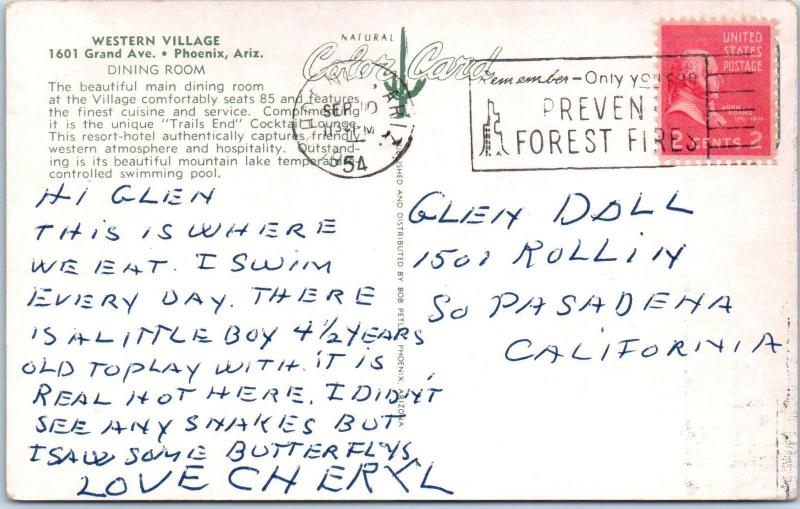 WESTERN VILLAGE
1601 Grand Ave. • Phoenix, Ariz.
DINING ROOM
The beautiful main dining room
at the Village comfortably seats 85 and features
the finest cuisine and service. Complimenting
it is the unique "Trails End" Cocktail Lounge.
This resort-hotel authentically captures friendly
western atmosphere and hospitality. Outstand-
ing is its beautiful mountain lake temperature-
controlled swimming pool.
NATURAL
Color Card
SEP
1954
Remember - Only you can
PREVENT
FOREST FIRES
UNITED
STATES
POSTAGE
JOHN
ADAMS
2 CENTS 2
AND DISTRIBUTED BY BOB PETLEY, PHOENIX, ARIZONA
HI GLEN
THIS IS WHERE
WE EAT. I SWIM
EVERY DAY. THERE
IS A LITTLE BOY 4 1/2 YEARS
OLD TO PLAY WITH. IT IS
REAL HOT HERE. I DIDNT
SEE ANY SNAKES BUT
I SAW SOME BUTTERFLYS
LOVE CHERYL
GLEN DOLL
1501 ROLLIN
SO PASADENA
CALIFORNIA